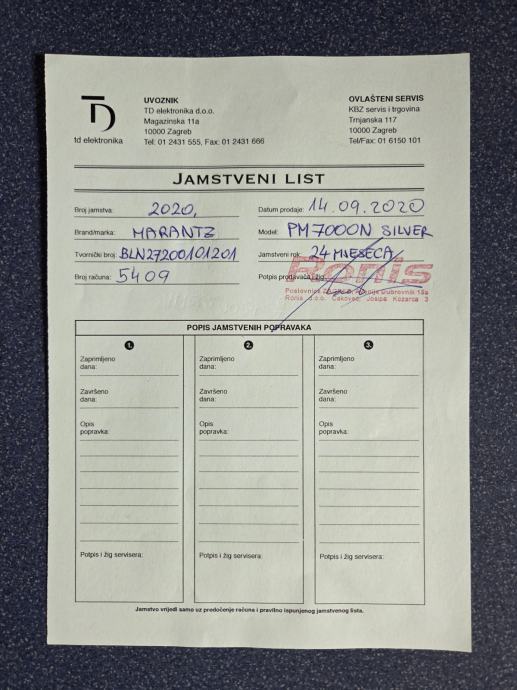 UVOZNIK
TD elektronika d.o.o.
Magazinska 11a
10000 Zagreb
Tel: 01 2431 555, Fax: 01 2431 666
td elektronika
OVLAŠTENI SERVIS
KBZ servis i trgovina
Trnjanska 117
10000 Zagreb
Tel/Fax: 01 6150 101
JAMSTVENI LIST
Broj jamstva: 2020,
Datum prodaje: 14.09.2020
Brand/marka: MARANTZ
Model: PM7000N SILVER
Tvornički broj: BLN27200101201
Jamstveni rok: 24 MJESECA
Broj računa: 5409
Potpis prodavača i žig:
Ronis
Poslovnica Zagreb, Avenija Dubrovnik 15a
Ronis d.o.o. Čakovec, Josipa Kozarca 3
POPIS JAMSTVENIH POPRAVAKA
1.
Zaprimljeno
dana:
Završeno
dana:
Opis
popravka:
Potpis i žig servisera:
2.
Zaprimljeno
dana:
Završeno
dana:
Opis
popravka:
Potpis i žig servisera:
3.
Zaprimljeno
dana:
Završeno
dana:
Opis
popravka:
Potpis i žig servisera:
Jamstvo vrijedi samo uz predočenje računa i pravilno ispunjenog jamstvenog lista.